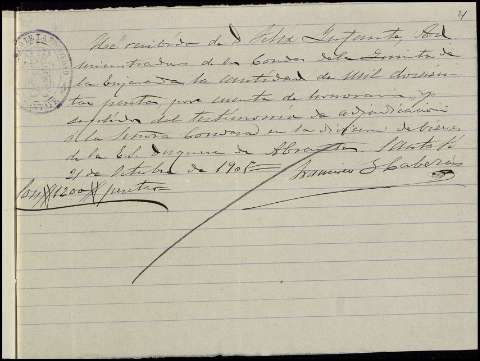 4
He recibido de D Felix Infante, Ad
ministrador de los Condes de la Quinta de
la Enjarada la cantidad de mil doscien-
tas pesetas por cuenta de honorarios y
del testimonio de adjudicacion
a la Señora Condesa en la division de bienes
de la Duquesa de Abrantes
21 de Octubre de 1905
Francisco
Son 1200 pesetas